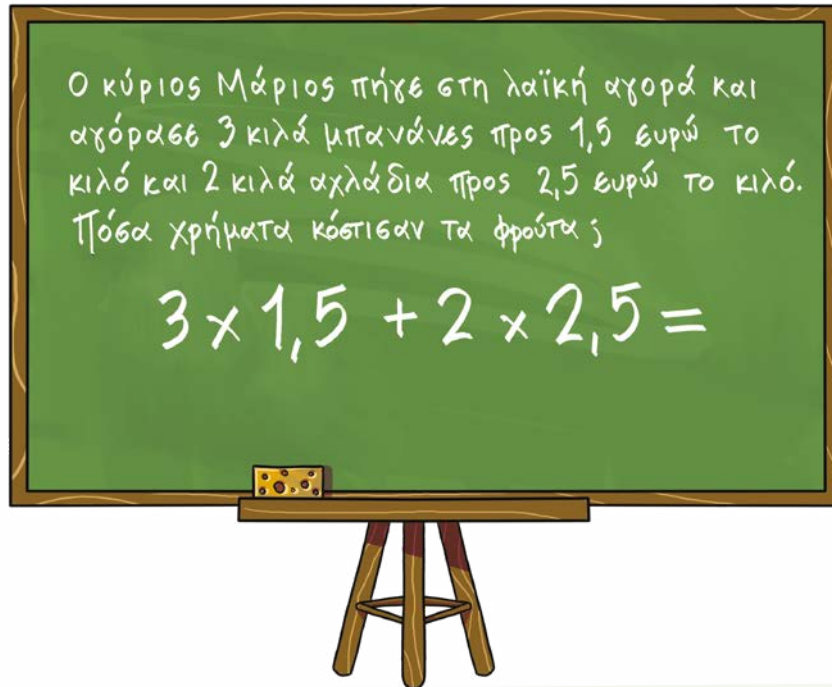 Ο κύριος Μάριος πήγε στη λαϊκή αγορά και
αγόρασε 3 κιλά μπανάνες προς 1,5 ευρώ το
κιλό και 2 κιλά αχλάδια προς 2,5 ευρώ το κιλό.
Πόσα χρήματα κόστισαν τα φρούτα;
3 x 1,5 + 2 x 2,5 =